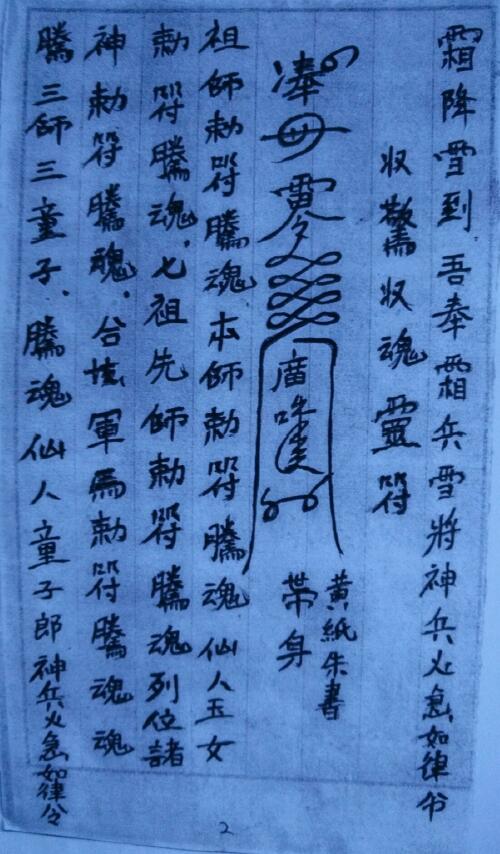 霜降雪到吾奉霜兵雪將神兵火急如律令
收驚收魂靈符
黃紙朱書
帶身
祖師勅符騰魂本師勅符騰魂仙人玉女
勅符騰魂。七祖先師勅符騰魂列位諸
神勅符騰魂。合境軍馬勅符騰魂魂
騰三師三童子、騰魂仙人童子郎神兵火急如律令
2